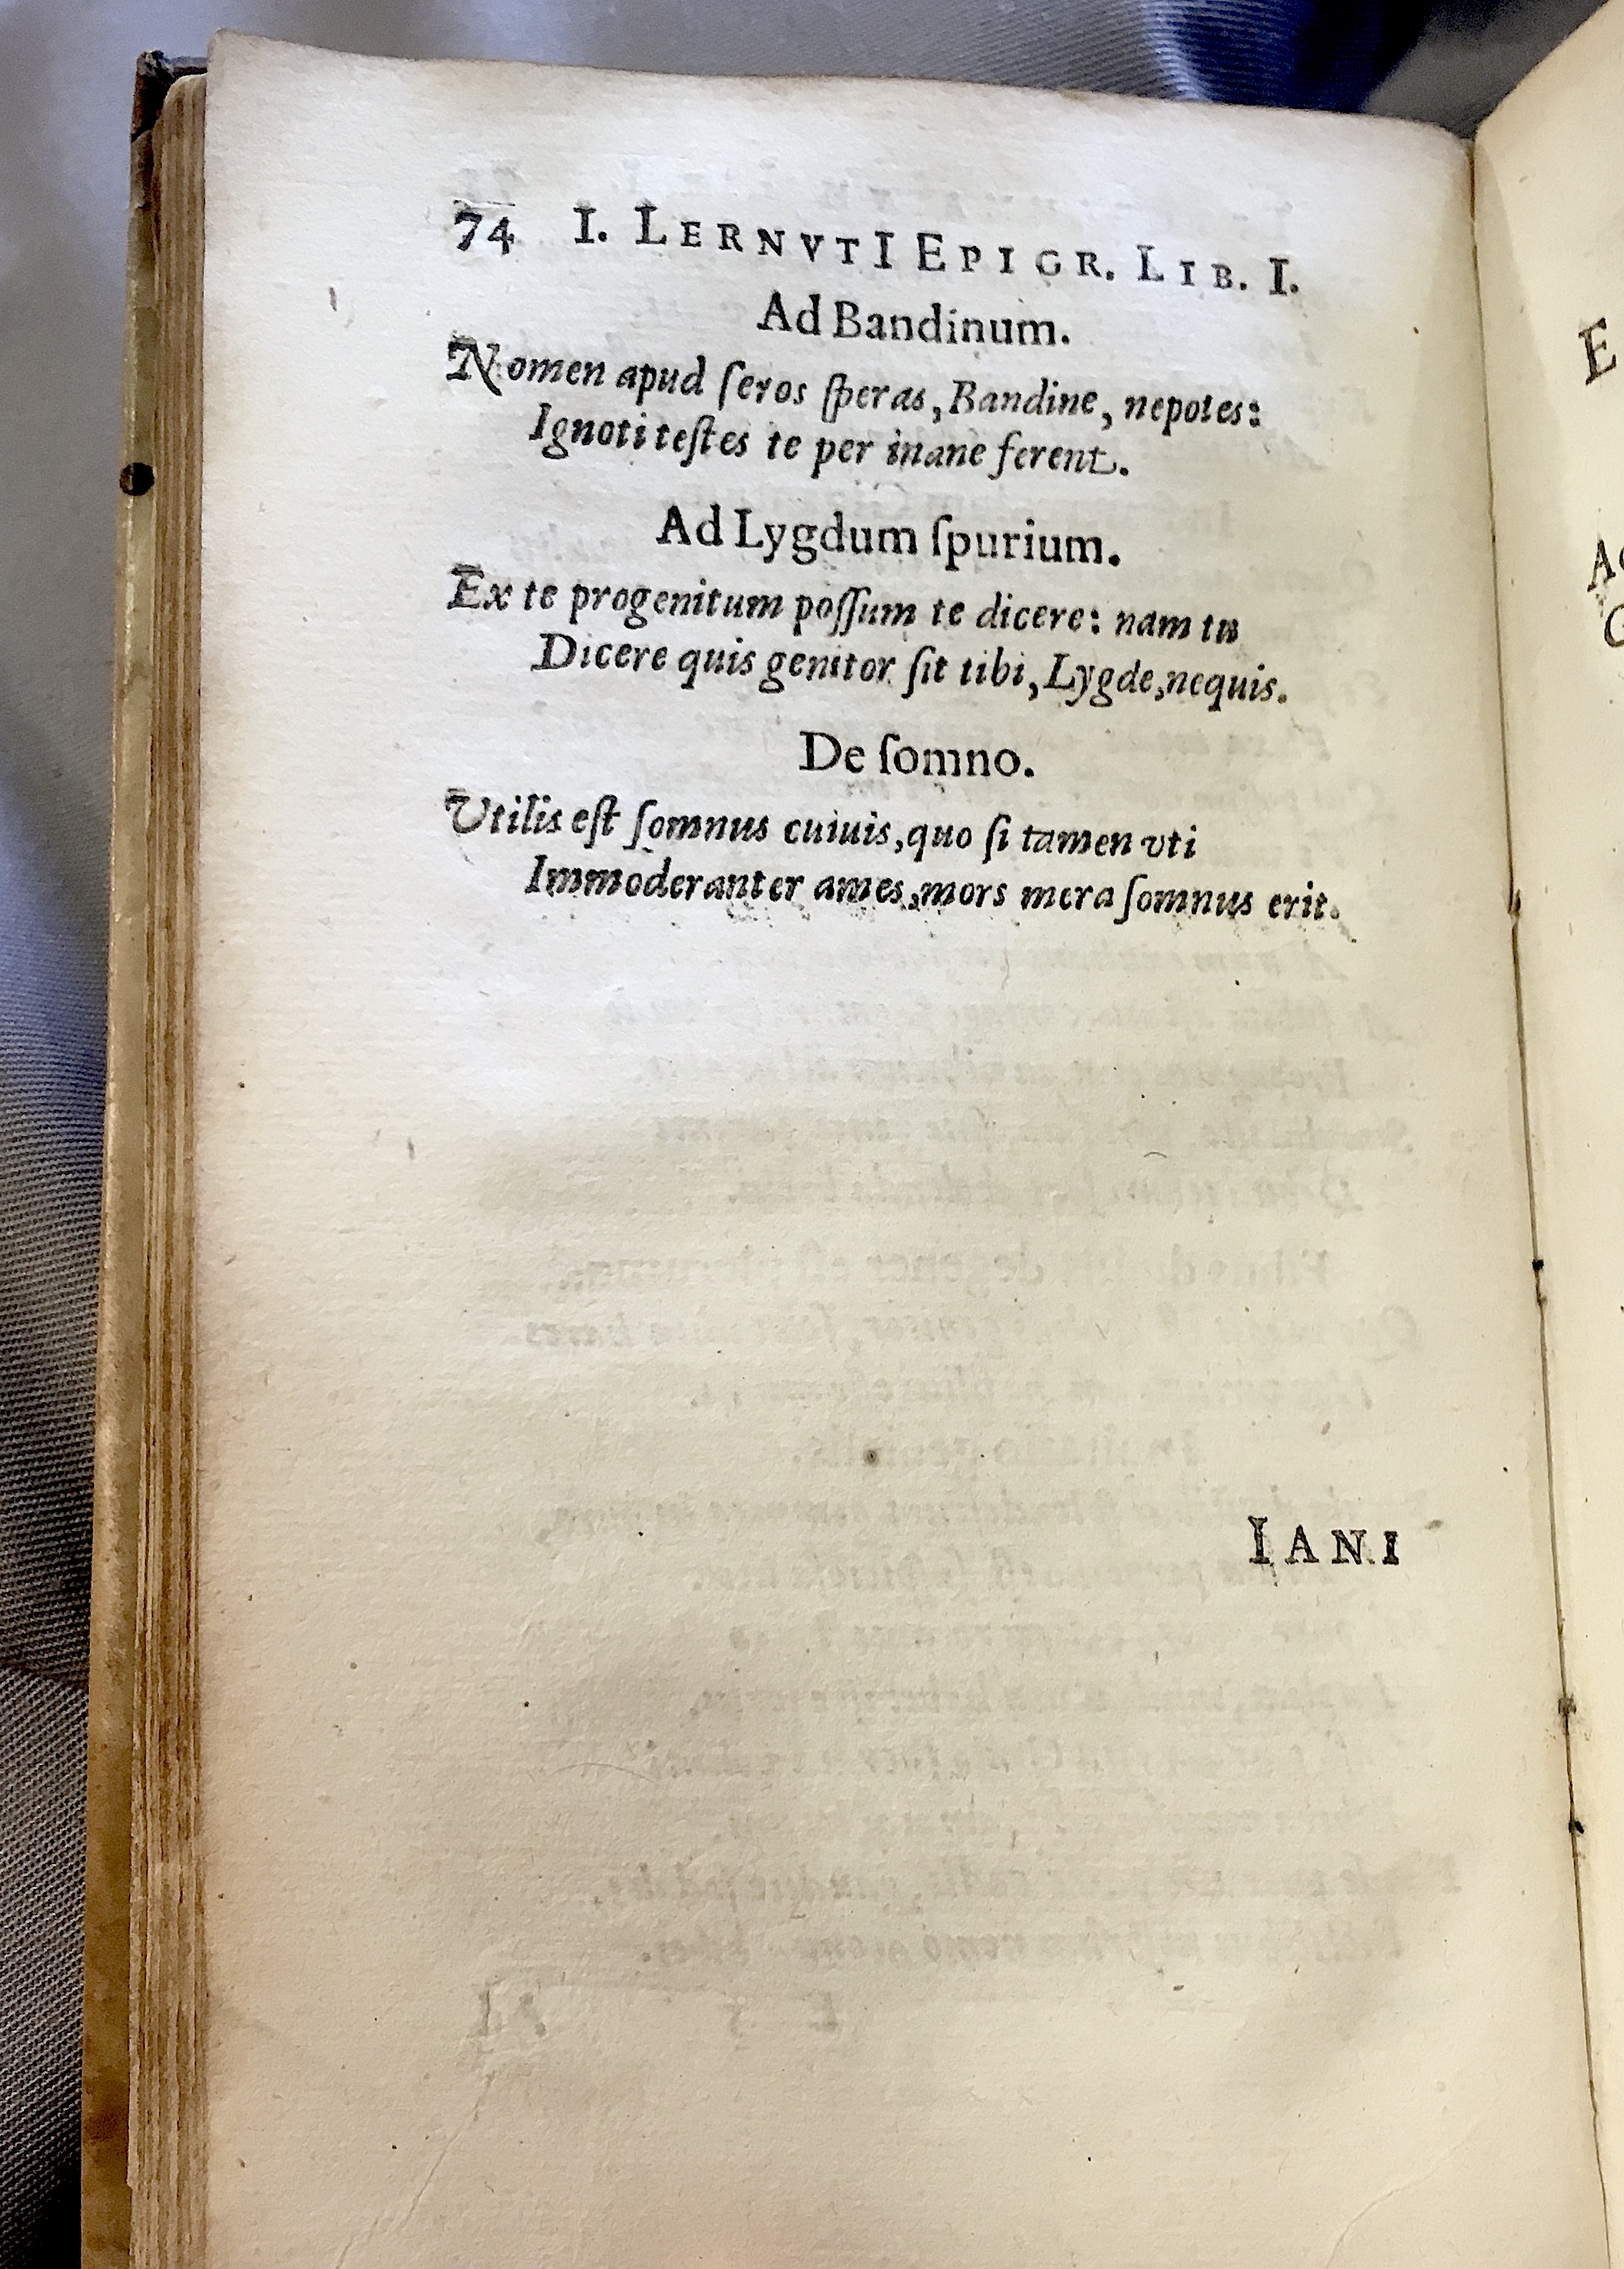 74 I. LERNVTI EPIGR. LIB. I.
Ad Bandinum.
Nomen apud ſeros ſperas, Bandine, nepotes:
Ignoti teſtes te per inane ferent.
Ad Lygdum ſpurium.
Ex te progenitum poſſum te dicere: nam tu
Dicere quis genitor ſit tibi, Lygde, nequis.
De ſomno.
Utilis eſt ſomnus cuiuis, quo ſi tamen vti
Immoderanter ames, mors mera ſomnus erit.
IANI
E